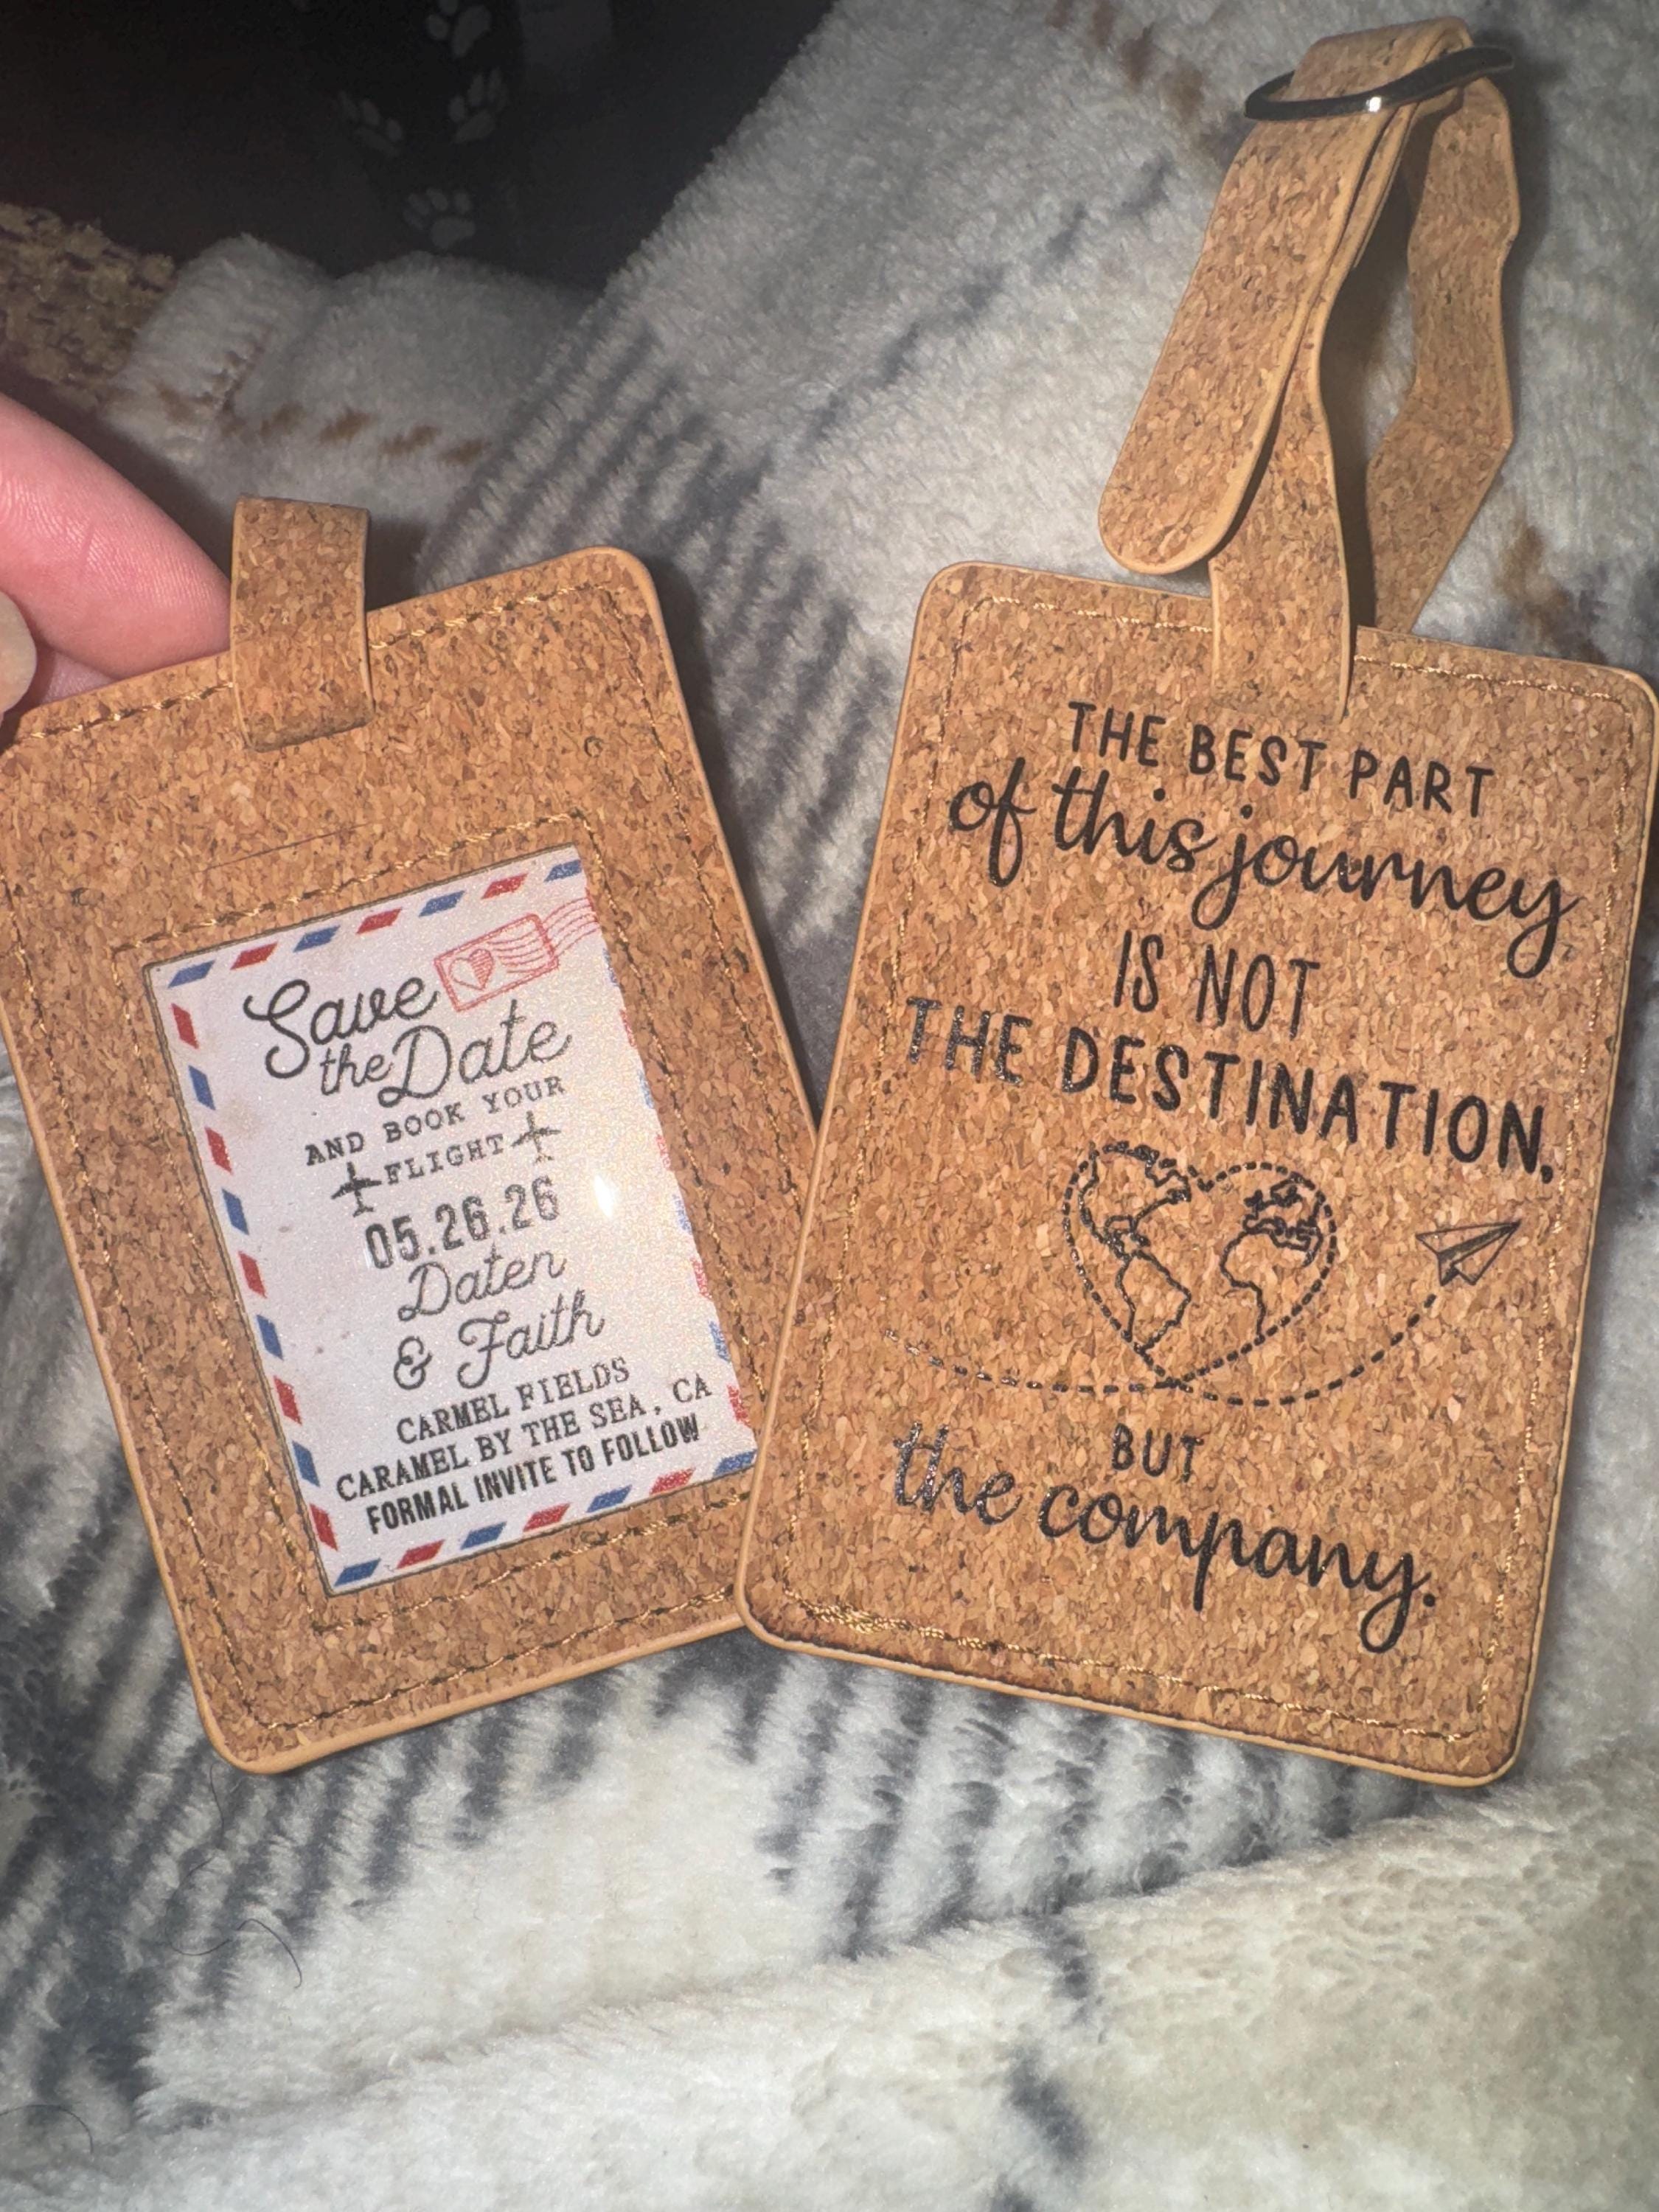 Save
the Date
AND BOOK YOUR
FLIGHT
05.26.26
Daten
& Faith
CARMEL FIELDS
CARAMEL BY THE SEA, CA
FORMAL INVITE TO FOLLOW
THE BEST PART
of this journey
IS NOT
THE DESTINATION,
BUT
the company.